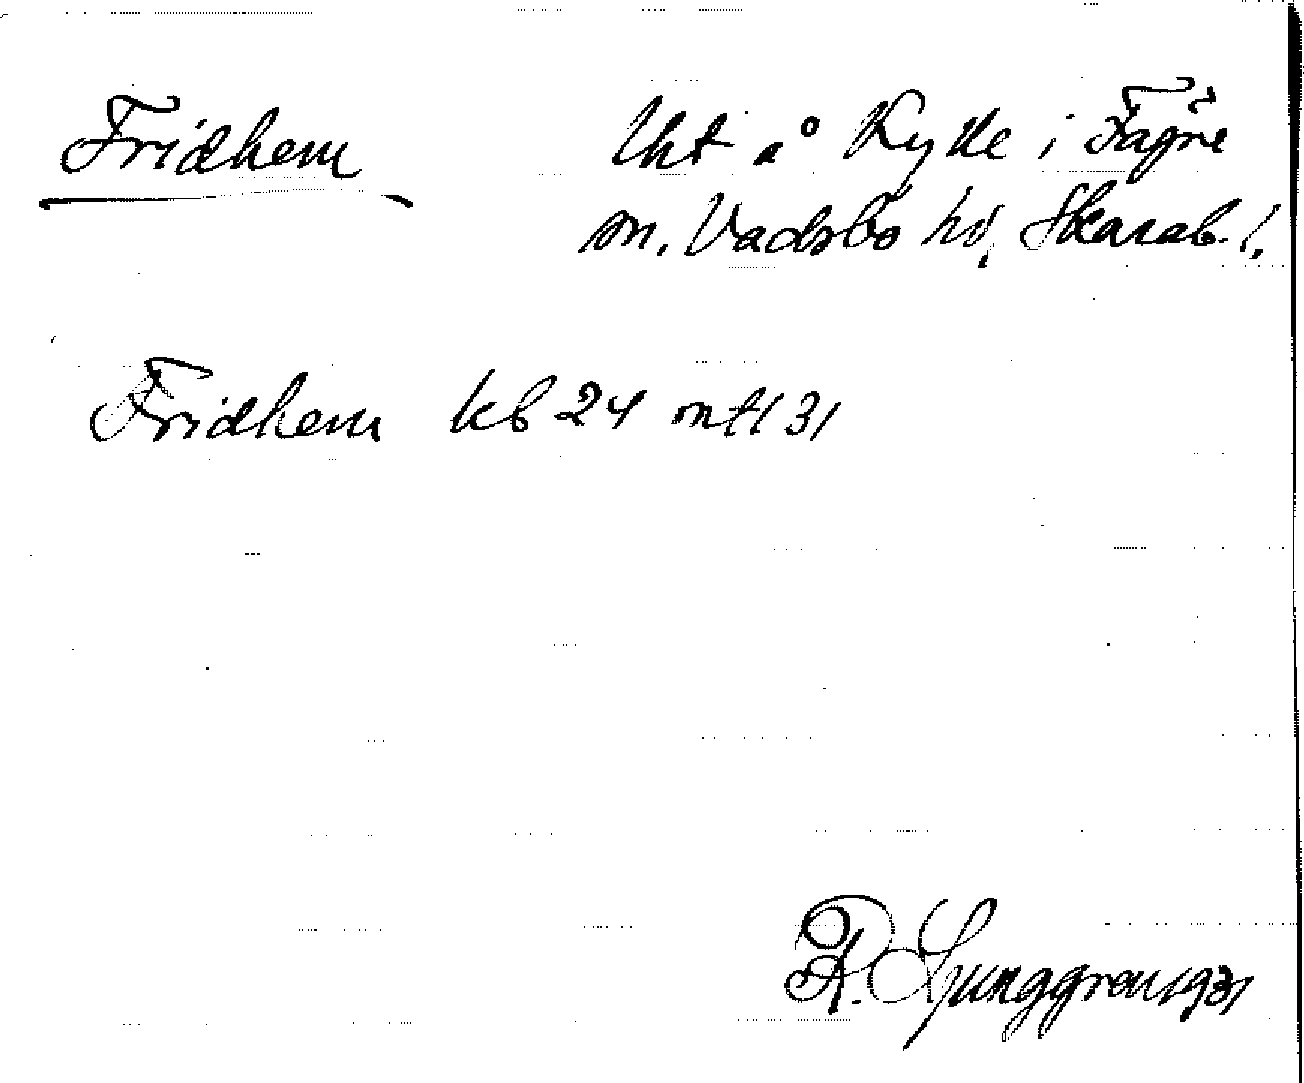 Fridhem
lht å Rylle i Fägre
sn. Vadsbo hd, Skarab. l.
Fridhem kb 24 mtl 31
R. Ljunggren 1931